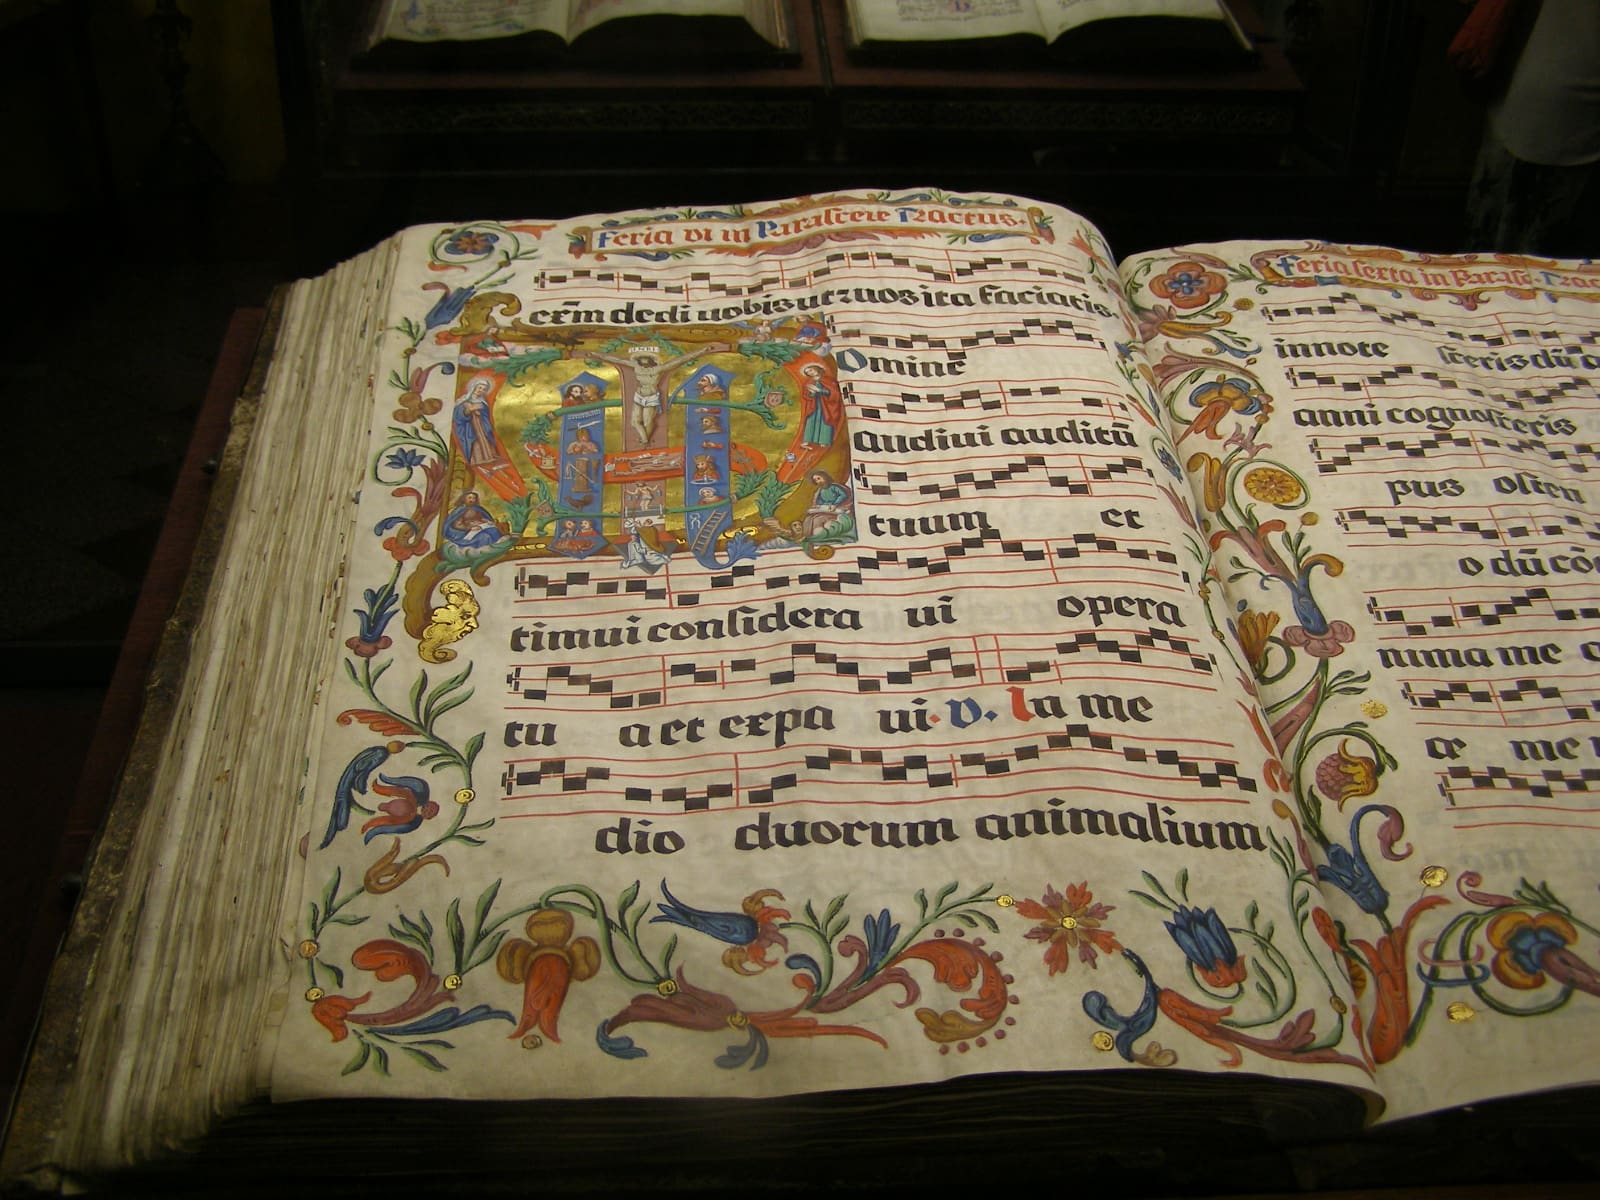 Feria vi in Parasceve Tractus.
exm̄ dedi uobis ut z uos ita faciatis.
Domine
audiui auditū
tuum et
timui considera ui opera
tu a et expa ui. V. In me
dio duorum animalium
Feria sexta in Parasc. Trac
innote sceris dū a
anni cognosceris
pus osten
o dū cō
nima me
ce me
INRI